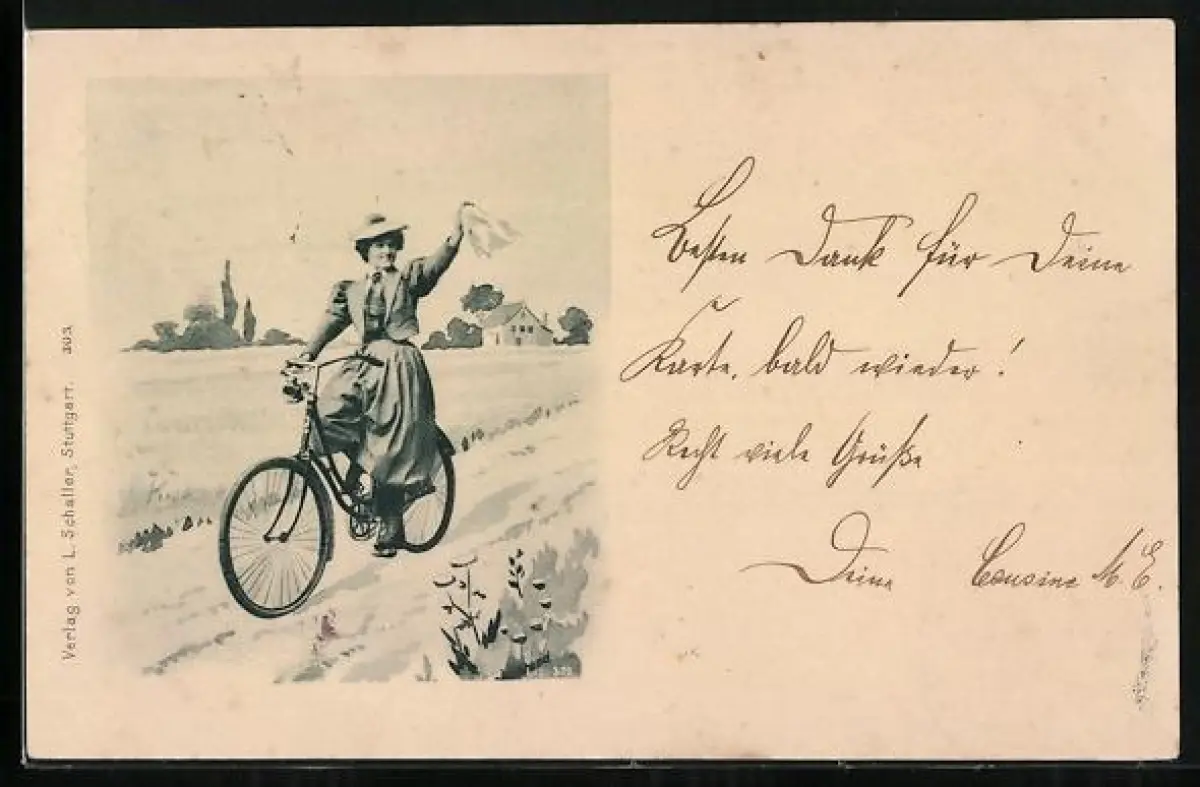 Verlag von L. Schaller, Stuttgart. 303.
Besten Dank für Deine
Karte, bald wieder!
Recht viele Grüße
Deine Cousine M. E.